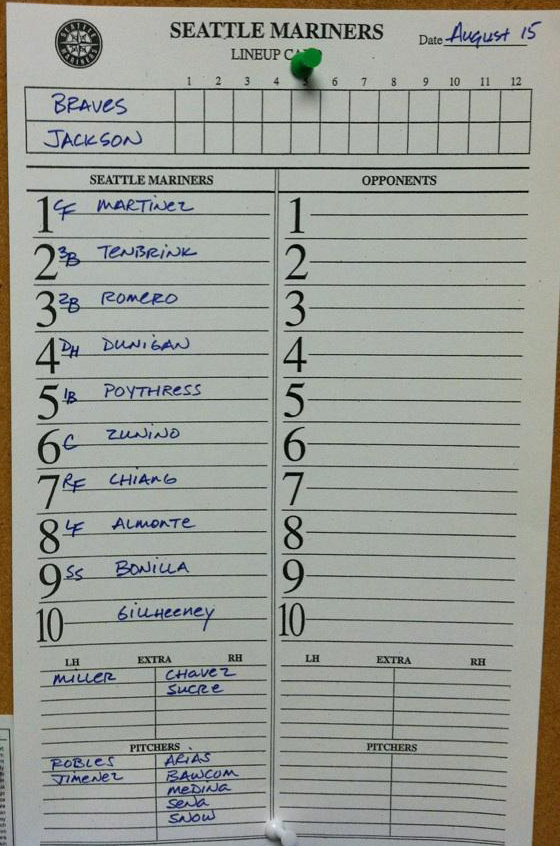 SEATTLE MARINERS
LINEUP CARD
Date August 15
1 2 3 4 5 6 7 8 9 10 11 12
BRAVES
JACKSON
SEATTLE MARINERS OPPONENTS
1 CF MARTINEZ 1
2 3B TENBRINK 2
3 2B ROMERO 3
4 DH DUNIGAN 4
5 1B POYTHRESS 5
6 C ZUNINO 6
7 RF CHIANG 7
8 LF ALMONTE 8
9 SS BONILLA 9
10 GILLHEENEY 10
LH EXTRA RH LH EXTRA RH
MILLER CHAVEZ
SUCRE
PITCHERS PITCHERS
ROBLES ARIAS
JIMENEZ BAWCOM
MEDINA
SENA
SNOW